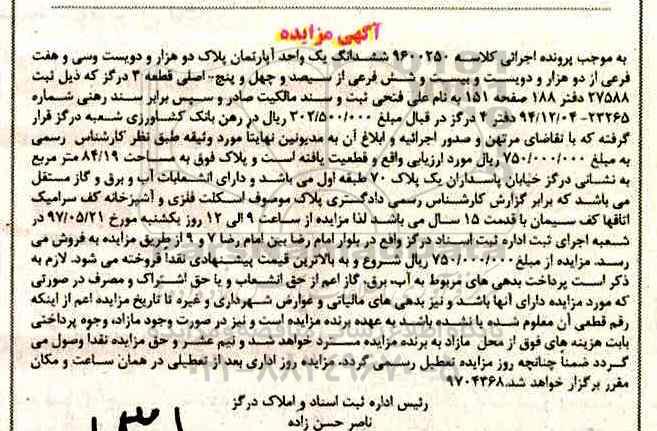 آگهی مزایده
به موجب پرونده اجرائی کلاسه ۹۶۰۰۲۵۰ ششدانگ یک واحد آپارتمان پلاک دو هزار و دویست وسی و هفت
فرعی از دو هزار و دویست و بیست و شش فرعی از سیصد و چهل و پنج- اصلی قطعه ۳ درگز که ذیل ثبت
۲۷۵۸۸ دفتر ۱۸۸ صفحه ۱۵۱ به نام علی فتحی ثبت و سند مالکیت صادر و سپس برابر سند رهنی شماره
۲۳۲۶۵- ۹۴/۱۲/۰۴ دفتر ۴ درگز در قبال مبلغ ۳۰۲/۵۰۰/۰۰۰ ریال در رهن بانک کشاورزی شعبه درگز قرار
گرفته که با تقاضای مرتهن و صدور اجرائیه و ابلاغ آن به مدیونین نهایتاً مورد وثیقه طبق نظر کارشناس رسمی
به مبلغ ۷۵۰/۰۰۰/۰۰۰ ریال مورد ارزیابی واقع و قطعیت یافته است و پلاک فوق به مساحت ۸۴/۱۹ متر مربع
به نشانی درگز خیابان پاسداران یک پلاک ۷۰ طبقه اول می باشد و دارای انشعابات آب و برق و گاز مستقل
می باشد که برابر گزارش کارشناس رسمی دادگستری پلاک موصوف اسکلت فلزی و آشپزخانه کف سرامیک
اتاقها کف سیمان با قدمت ۱۵ سال می باشد لذا مزایده از ساعت ۹ الی ۱۲ روز یکشنبه مورخ ۹۷/۰۵/۲۱ در
شعبه اجرای ثبت اداره ثبت اسناد درگز واقع در بلوار امام رضا بین امام رضا ۷ و ۹ از طریق مزایده به فروش می
رسد. مزایده از مبلغ ۷۵۰/۰۰۰/۰۰۰ ریال شروع و به بالاترین قیمت پیشنهادی نقداً فروخته می شود. لازم به
ذکر است پرداخت بدهی های مربوط به آب، برق، گاز اعم از حق انشعاب و یا حق اشتراک و مصرف در صورتی
که مورد مزایده دارای آنها باشد و نیز بدهی های مالیاتی و عوارض شهرداری و غیره تا تاریخ مزایده اعم از اینکه
رقم قطعی آن معلوم شده یا نشده باشد به عهده برنده مزایده است و نیز در صورت وجود مازاد، وجوه پرداختی
بابت هزینه های فوق از محل مازاد به برنده مزایده مسترد خواهد شد و نیم عشر و حق مزایده نقدا وصول می
گردد ضمناً چنانچه روز مزایده تعطیل رسمی گردد، مزایده روز اداری بعد از تعطیلی در همان ساعت و مکان
مقرر برگزار خواهد شد. ۹۷۰۴۳۶۸
رئیس اداره ثبت اسناد و املاک درگز
ناصر حسن زاده